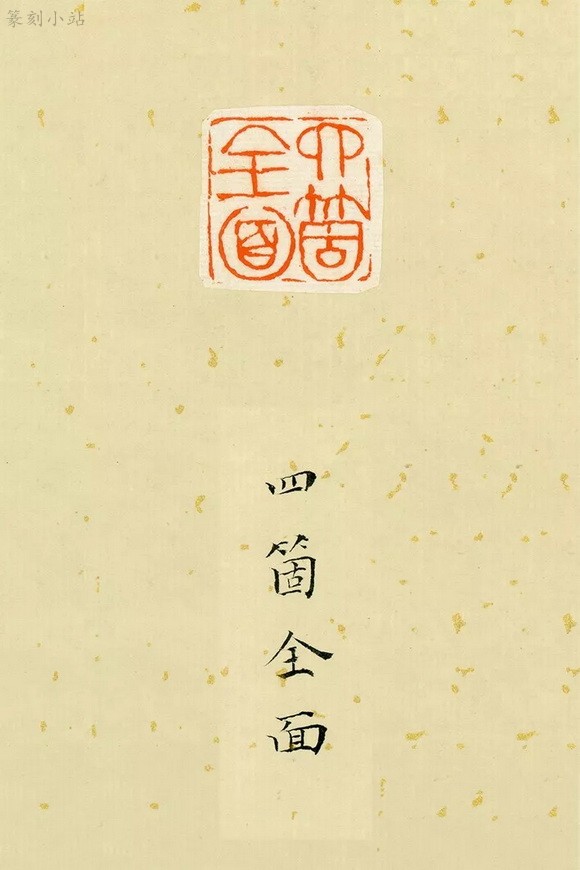 篆刻小站
四箇
全面
四箇全面